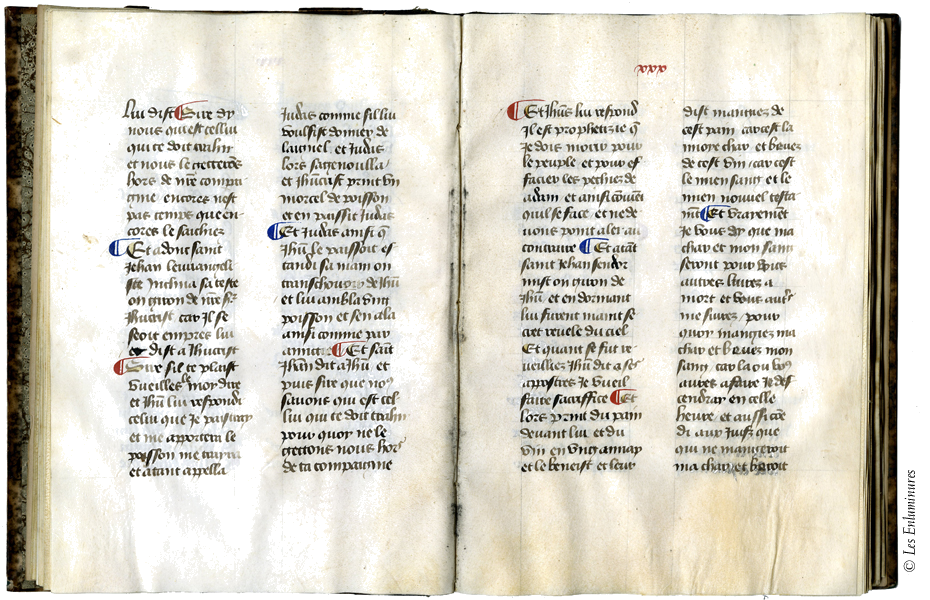 Lui dist Sire dy
nous qui est celluy
qui te doit trahir
et nous le getterons
hors de nre compai
gnie encores nest
pas temps que en
cores le sachiez
Et adont saint
Jehan leuvangeli
ste inclina sa teste
on giron de nre sr
Jhucrist car Il se
seoit empres lui
et dist a Jhucrist
Sire sil te plaist
Vueilles le moy dire
et Jhus lui respondi
celui que Je paistray
et me apportera le
poisson me traira
et atant appella
Judas comme sil lui
voulsist donner de
laignel et Judas
lors sagenoulla
et Jhucrist print vn
morcel de poisson
et en paissit Judas
Et Judas ainsi q
Jhus le paissoit es
tandi sa main on
et lui ambla vng
poisson et sen ala
ainsi comme par
Et saint
Jehan dit a Jhus et
puis sire que nos
sauons qui est cel
lui qui te doit trahir
pour quoy ne le
gettons nous hors
de ta compaignie
xxx
Et Jhus lui respond
Il est prophetizie q
Je dois morir pour
le peuple et pour ef
facier les pechiez de
adam et ainsi conuient
quil se face et ne de
uons point aler au
contraire Et atant
saint Jehan sendor
mist on giron de
Jhus et en dormant
lui furent maint se
cret reuele du ciel
Et quant se fut re
ueilliez Jhus dit a ses
appostres Je vueil
faire sacrifice Et
lors print du pain
deuant lui et du
vin en vng
et le beneist et leur
dist mangiez de
cest pain car cest la
moye char et beuuez
de cest vin car cest
le mien sang et le
mien nouuel testa
ment Et vrayement
Je vous dy que ma
char et mon sang
seront pour vous
autres liurez a
mort et vous autres
me suirez pour
quoy mangiez ma
char et beuuez mon
sang car la ou vos
autres a faire Je des
cendray en celle
heure et aussi
di aux Juifz que
qui ne mangeroit
ma char et beuroit
© Les Enluminures